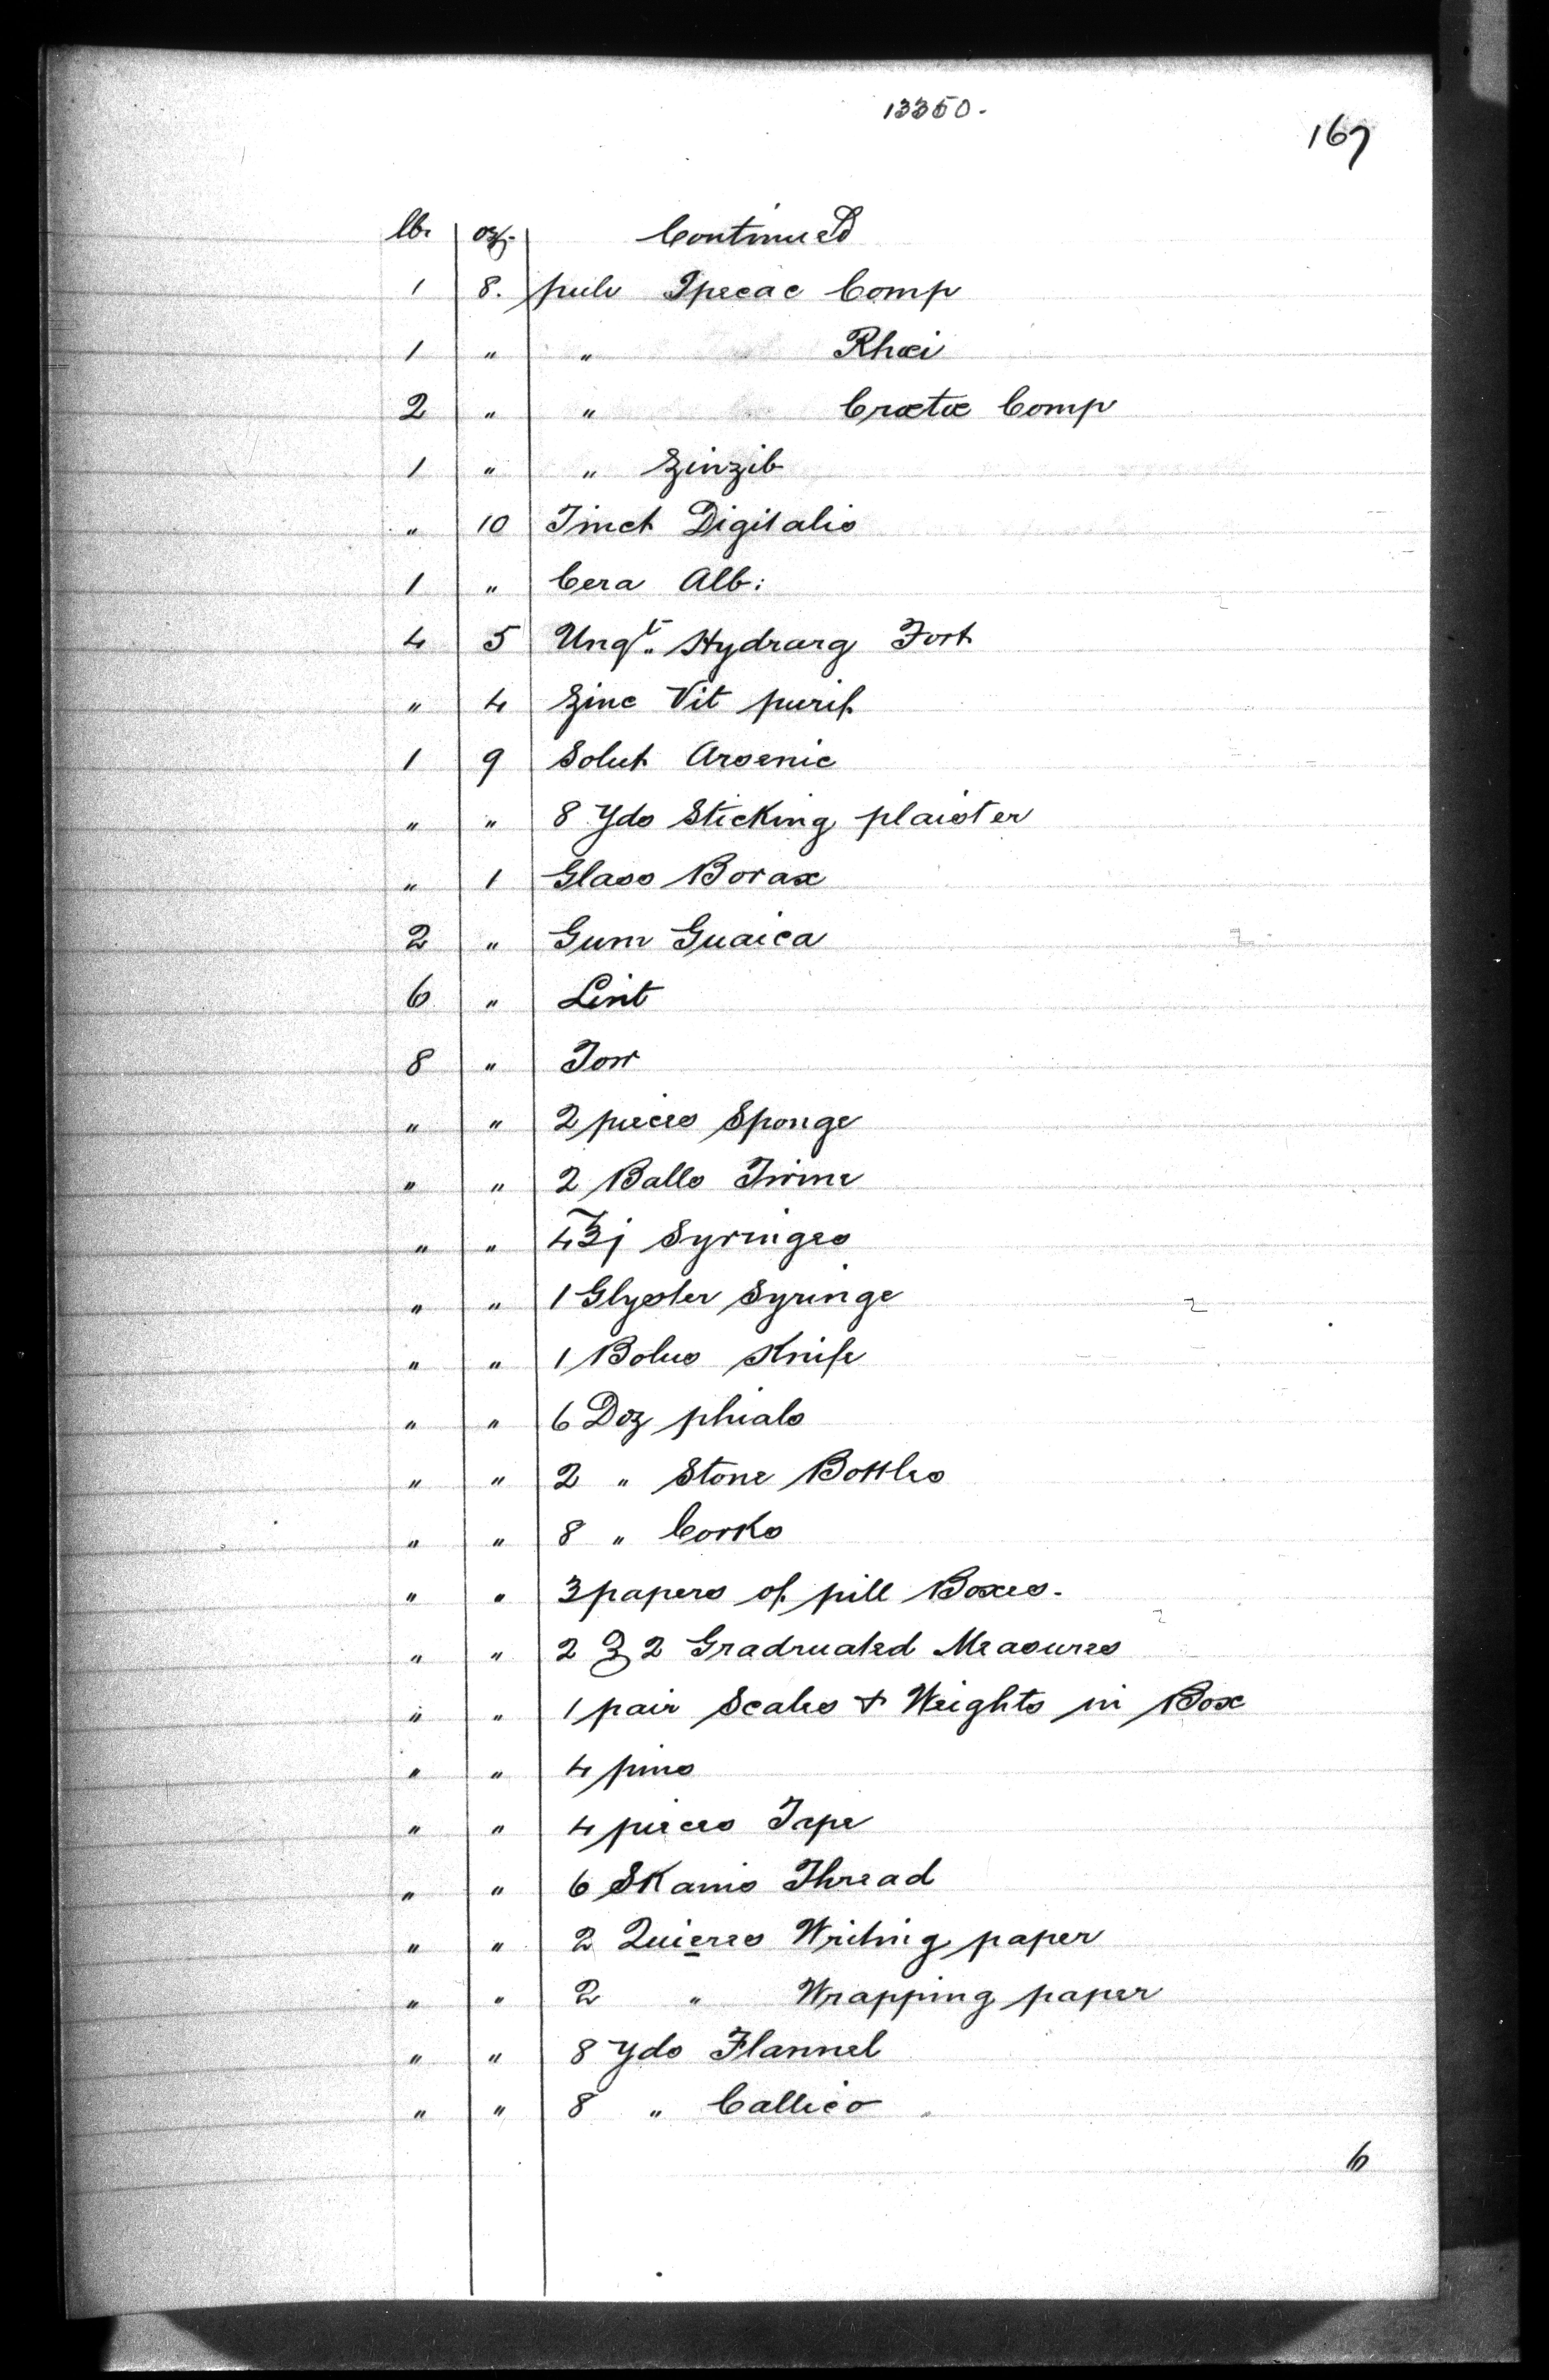 13350.
167
lbs oz. Continued
1 8. pulv Ipecac Comp
1 " " Rhœi
2 " " Crœtœ Comp
1 " " Zinzib
" 10 Tinct Digitalis
1 " Cera Alb:
4 5 Ungt. Hydrarg Fort
" 4 Zinc Vit purif.
1 9 Solut Arsenic
" " 8 Yds Sticking plaister
" 1 Glass Borax
2 " Gum Guaica
6 " Lint
8 " Tow
" " 2 pieces Sponge
" " 2 Balls Twine
" " 4 ℥j Syringes
" " 1 Glyster Syringe
" " 1 Bolus Knife
" " 6 Doz phials
" " 2 " Stone Bottles
" " 8 " Corks
" " 3 papers of pill Boxes.
" " 2 ℥ 2 Gradruated Measures
" " 1 pair Scales & Weights in Box
" " 4 pins
" " 4 pieces Tape
" " 6 Skains Thread
" " 2 Quieres Writing paper
" " 2 " Wrapping paper
" " 8 yds Flannel
" " 8 " Callico
6